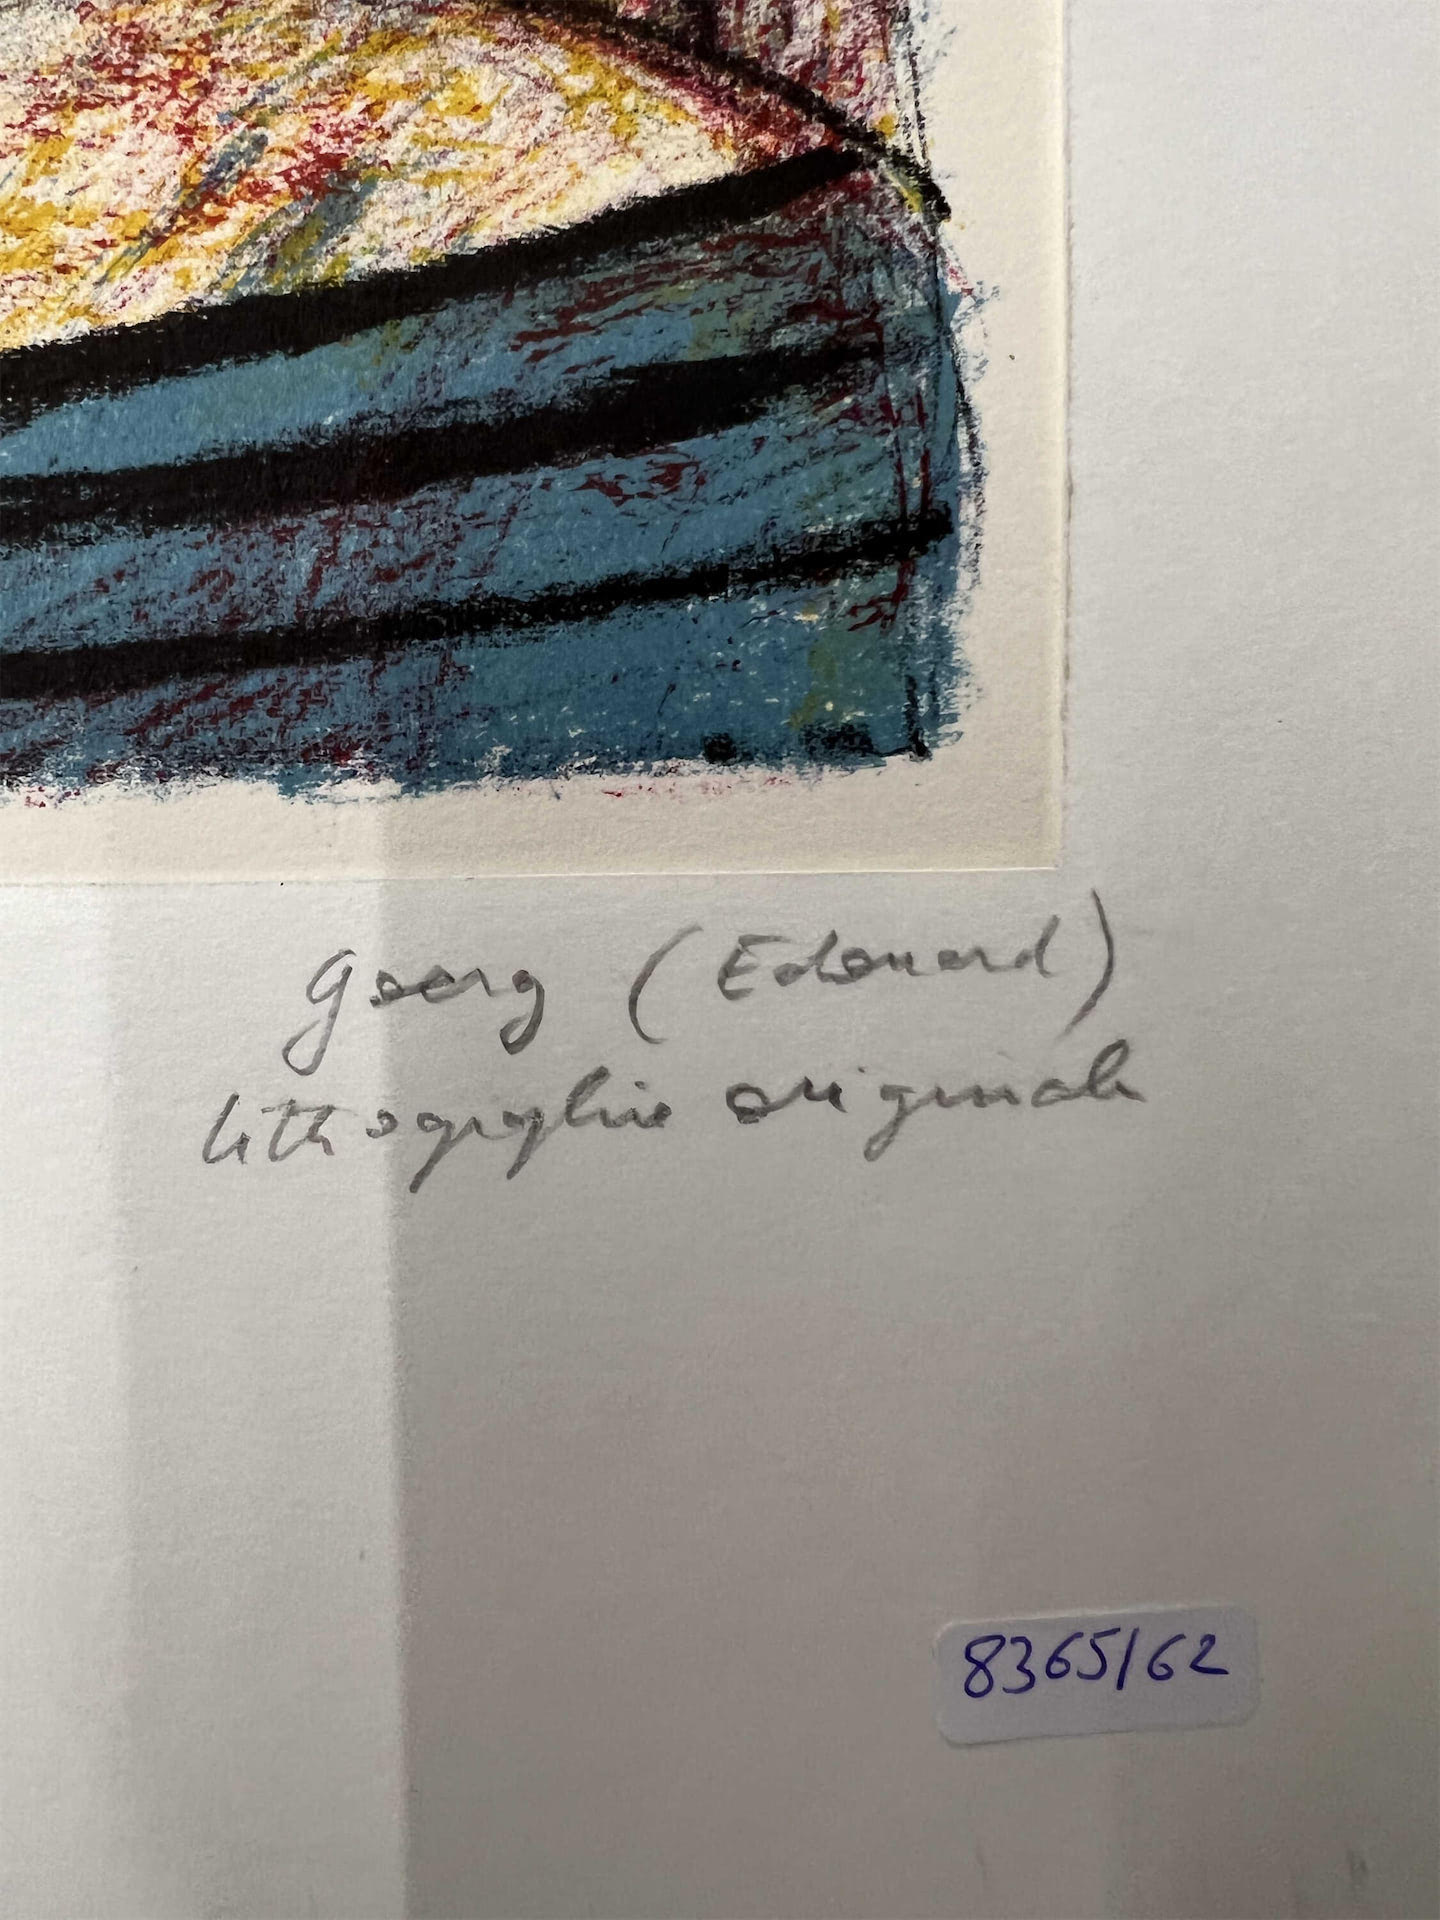 Goerg (Edouard)
lithographie originale
8365/62